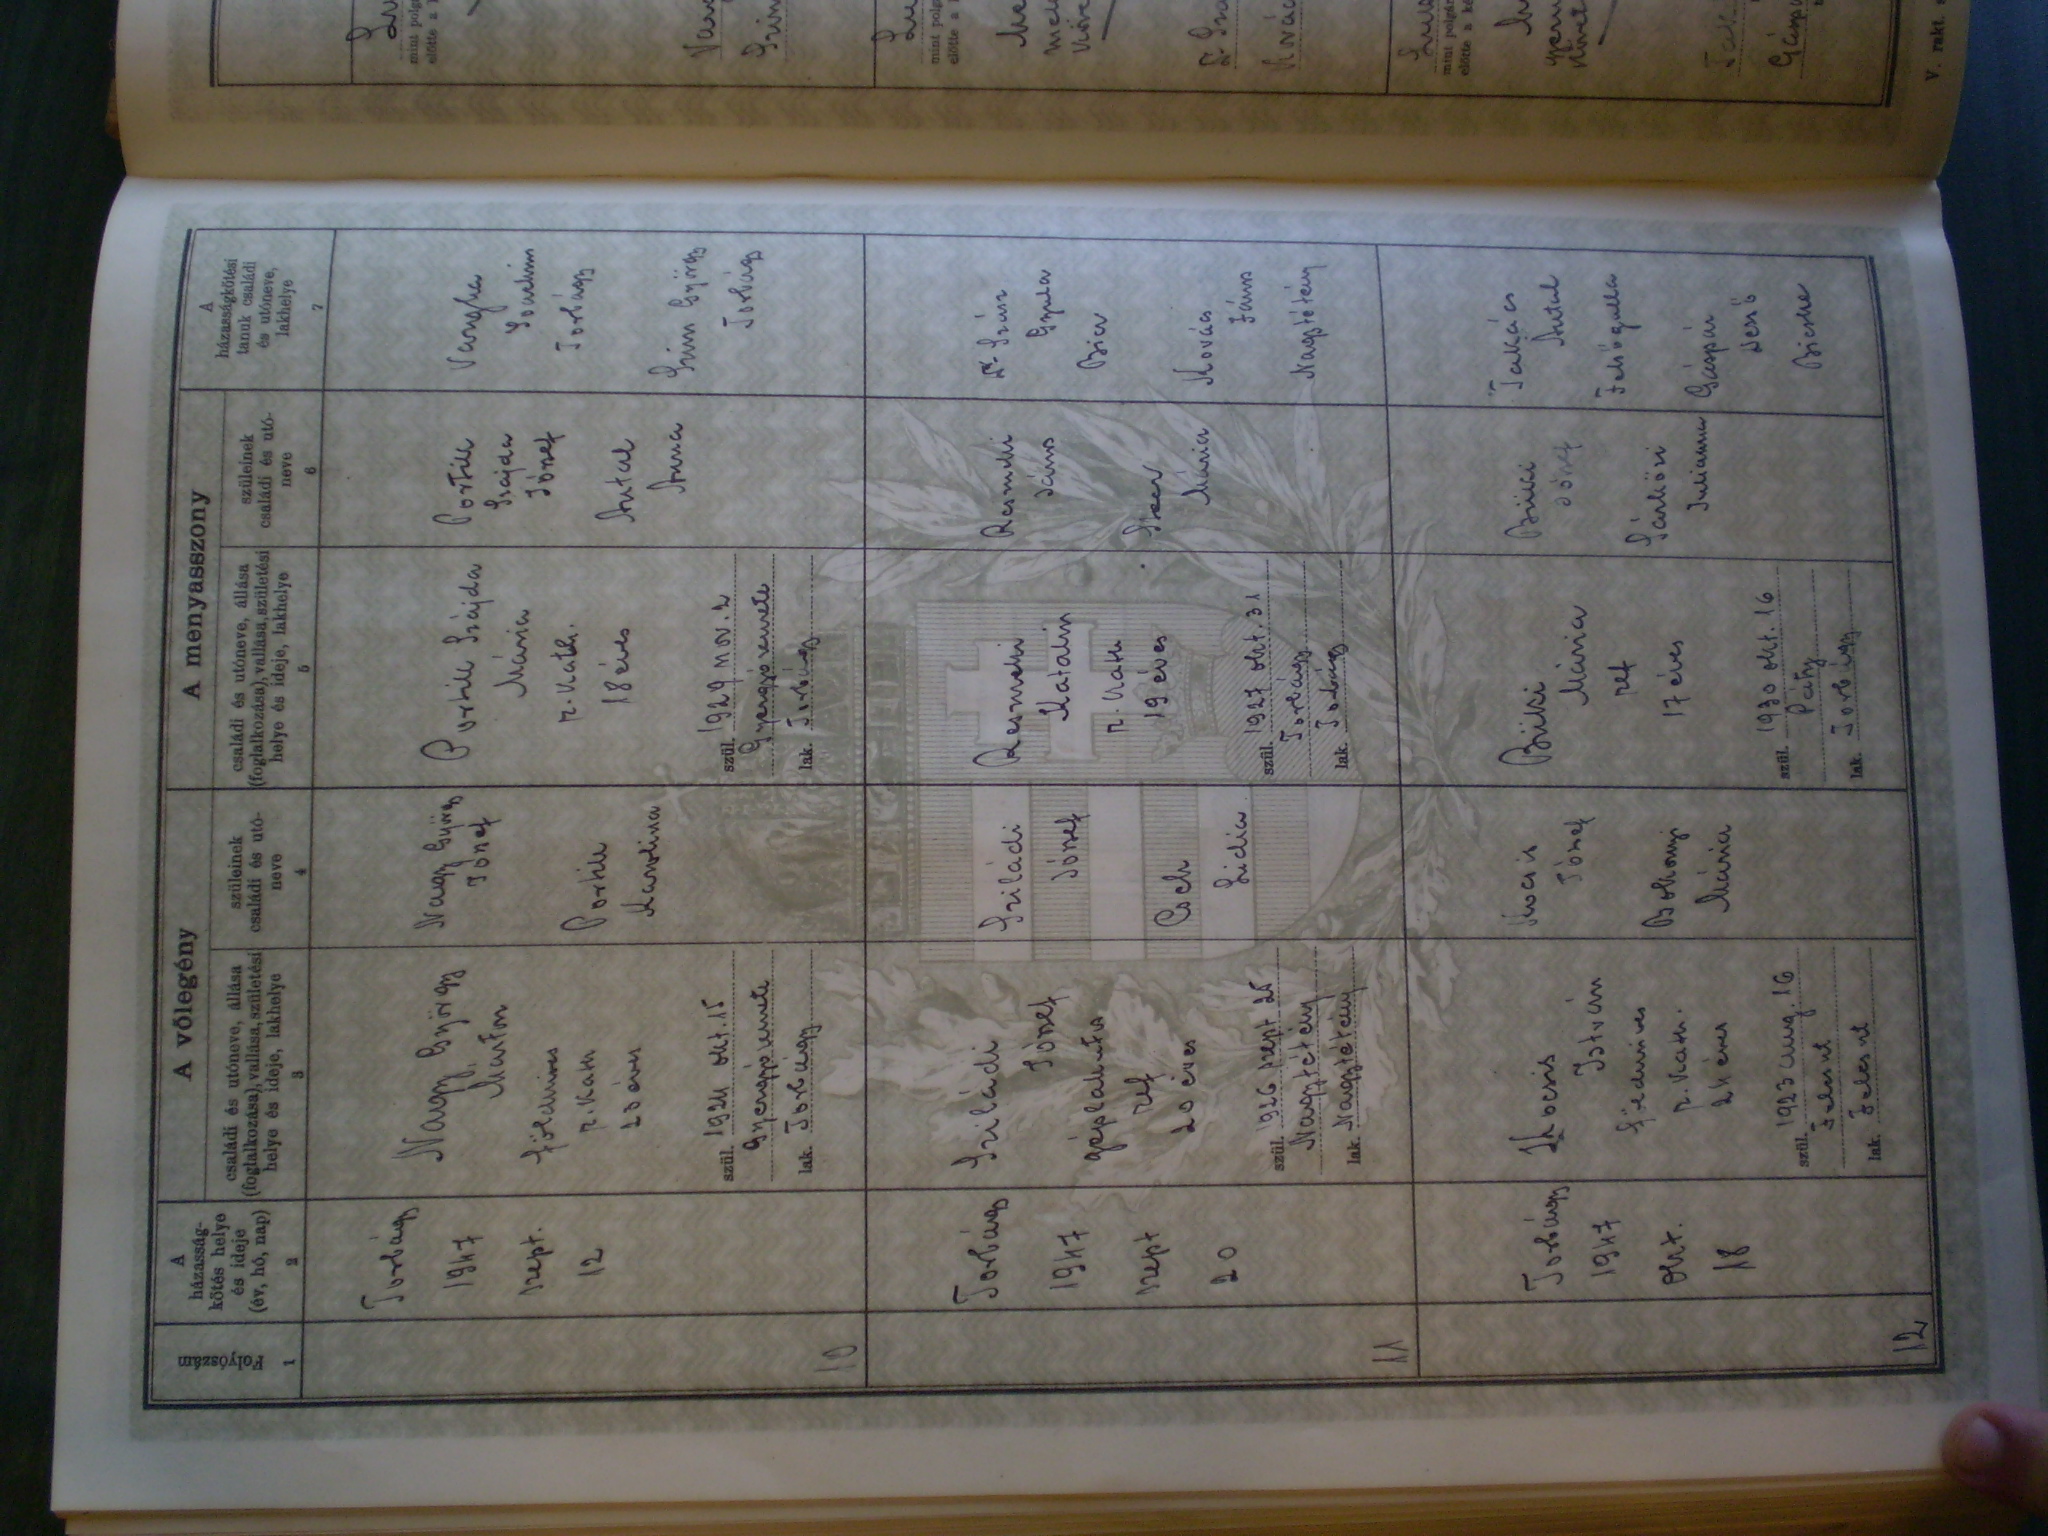 A vőlegény
A menyasszony
Folyószám
1
A
házasság-
kötés helye
és ideje
(év, hó, nap)
2
családi és utóneve, állása
(foglalkozása), vallása, születési
helye és ideje, lakhelye
3
szüleinek
családi és utó-
neve
4
családi és utóneve, állása
(foglalkozása), vallása, születési
helye és ideje, lakhelye
5
szüleinek
családi és utó-
neve
6
A
házasságkötési
tanuk családi
és utóneve,
lakhelye
7
10
Torbágy
1947
szept.
12
Nagy György
Márton
földmíves
r. kath
23 éves
szül. 1924 okt. 15
Gyergyóremete
lak. Torbágy
Nagy György
József
Portik
Karolina
Portik Szajda
Mária
r. kath.
18 éves
szül. 1929 nov. 2
Gyergyóremete
lak. Torbágy
Portik
Szajda
József
Antal
Anna
Vargha
Joachim
Torbágy
György
Torbágy
11
Torbágy
1947
szept
20
Sziládi
József
géplakatos
ref
20 éves
szül. 1926 szept 25
Nagytétény
lak. Nagytétény
Sziládi
József
Cseh
Lidia
Resmeki
Katalin
r. kath
19 éves
szül. 1927 okt. 31
Torbágy
lak. Torbágy
Resmeki
János
Mária
Dr. Szász
Gyula
Bia
Kovács
János
Nagytétény
12
Torbágy
1947
okt.
18
Kocsis
István
földmíves
r. kath.
24 éves
szül. 1923 aug. 16
lak.
Kocsis
József
Mária
Mária
ref
17 éves
szül. 1930 okt. 16
Páty
lak. Torbágy
József
Sárközi
Julianna
Takács
Antal
Felsőgalla
Gáspár
Dezső
Bicske
mint polgári
előtte a
mint polgá
előtte a
mint polgár
előtte a ké
Kovác
V. rakt.